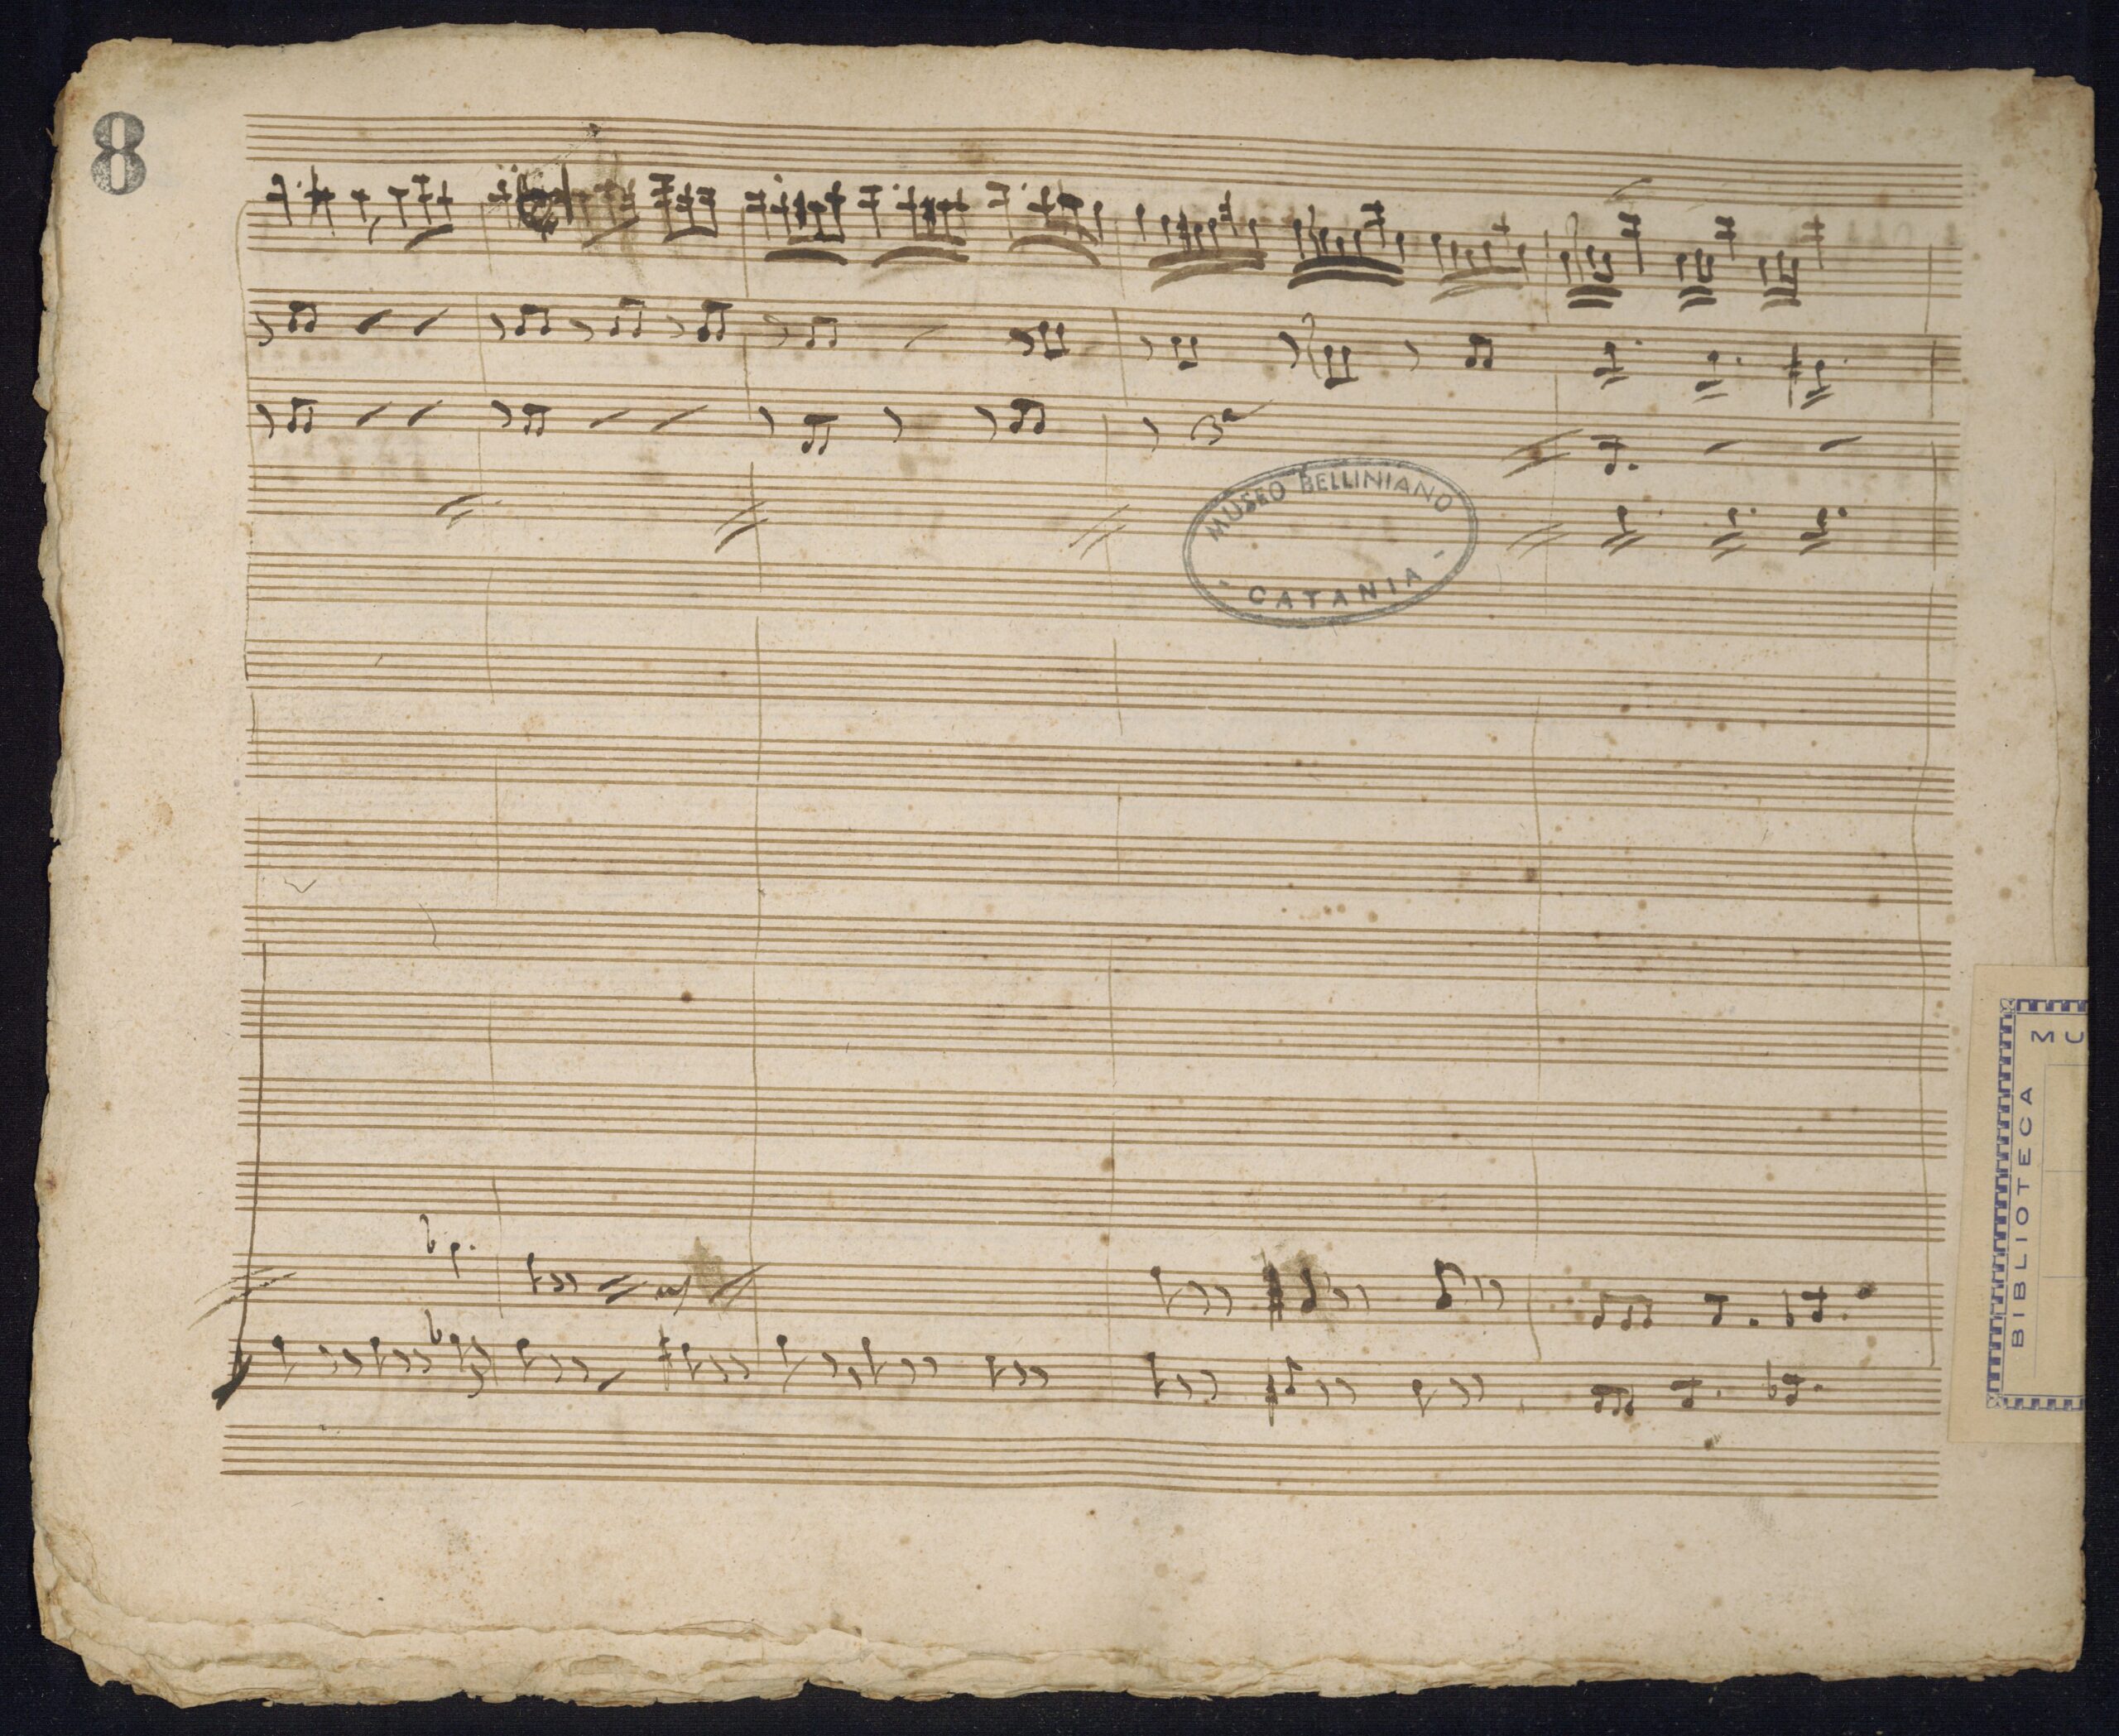 8
3a
MUSEO BELLINIANO
- CATANIA -
BIBLIOTECA
M
C